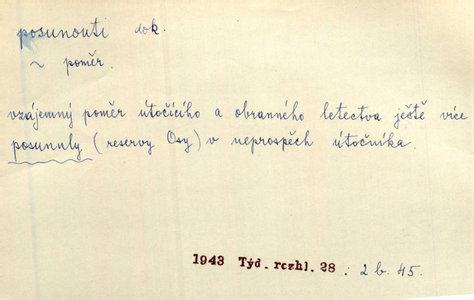 posunouti dok.
~ poměr.
vzájemný poměr útočícího a obranného letectva ještě více
posunuly (reservy Osy) v neprospěch útočníka.
1943 Týd. rozhl. 28 : 2 b. 45.